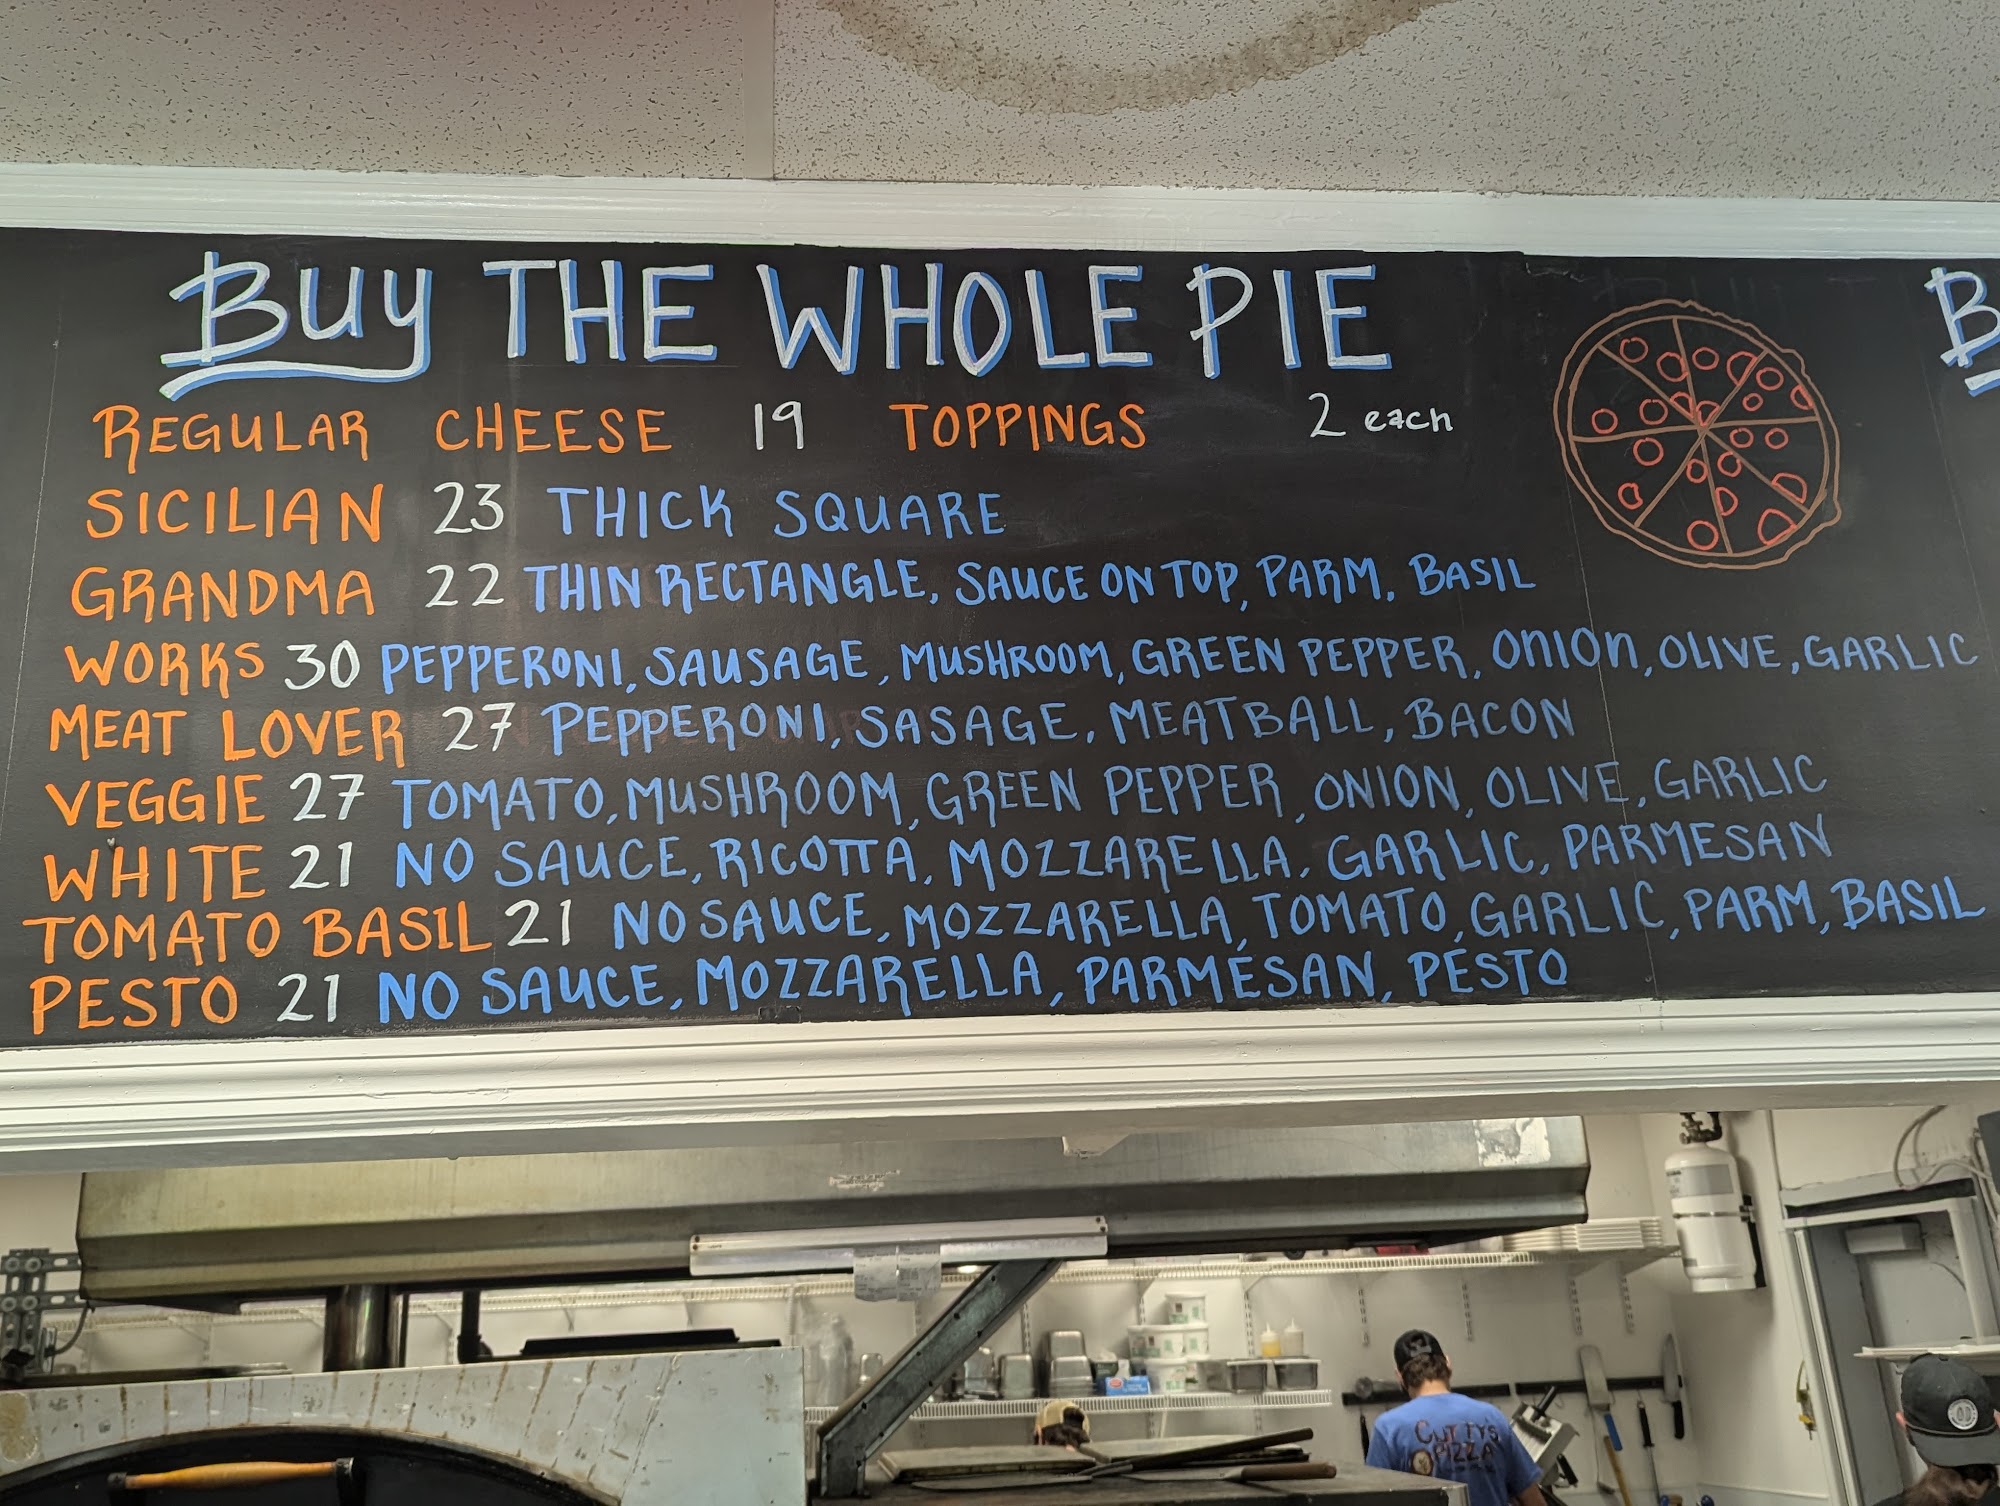 BUY THE WHOLE PIE
B
REGULAR CHEESE 19 TOPPINGS 2 each
SICILIAN 23 THICK SQUARE
GRANDMA 22 THIN RECTANGLE, SAUCE ON TOP, PARM, BASIL
WORKS 30 PEPPERONI, SAUSAGE, MUSHROOM, GREEN PEPPER, ONION, OLIVE, GARLIC
MEAT LOVER 27 PEPPERONI, SASAGE, MEATBALL, BACON
VEGGIE 27 TOMATO, MUSHROOM, GREEN PEPPER, ONION, OLIVE, GARLIC
WHITE 21 NO SAUCE, RICOTTA, MOZZARELLA, GARLIC, PARMESAN
TOMATO BASIL 21 NO SAUCE, MOZZARELLA, TOMATO, GARLIC, PARM, BASIL
PESTO 21 NO SAUCE, MOZZARELLA, PARMESAN, PESTO
PIZZA